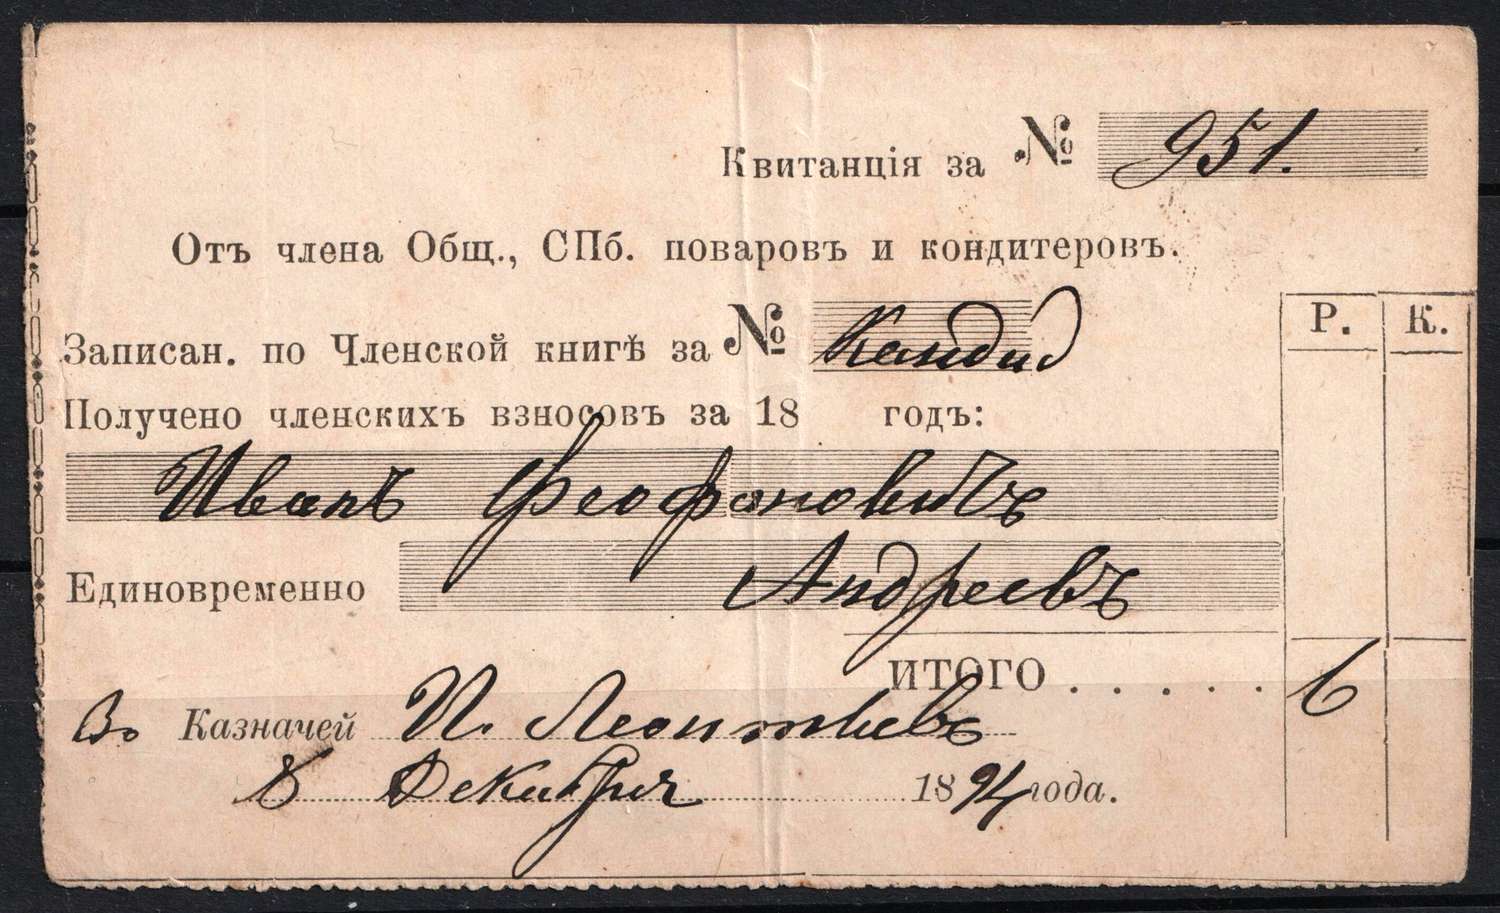 Квитанція за № 951.
Отъ члена Общ., СПб. поваровъ и кондитеровъ.
Р. К.
Записан. по Членской книгѣ за № Кандид
Получено членскихъ взносовъ за 18 годъ:
Иванъ Феофановичъ
Единовременно Андреевъ
ИТОГО . . . . . . 6
Вр Казначей И. Леонтьевъ
8 Декабря 1894 года.